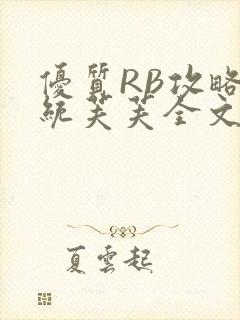 優質RB攻略
統芙芙全文
夏雲起